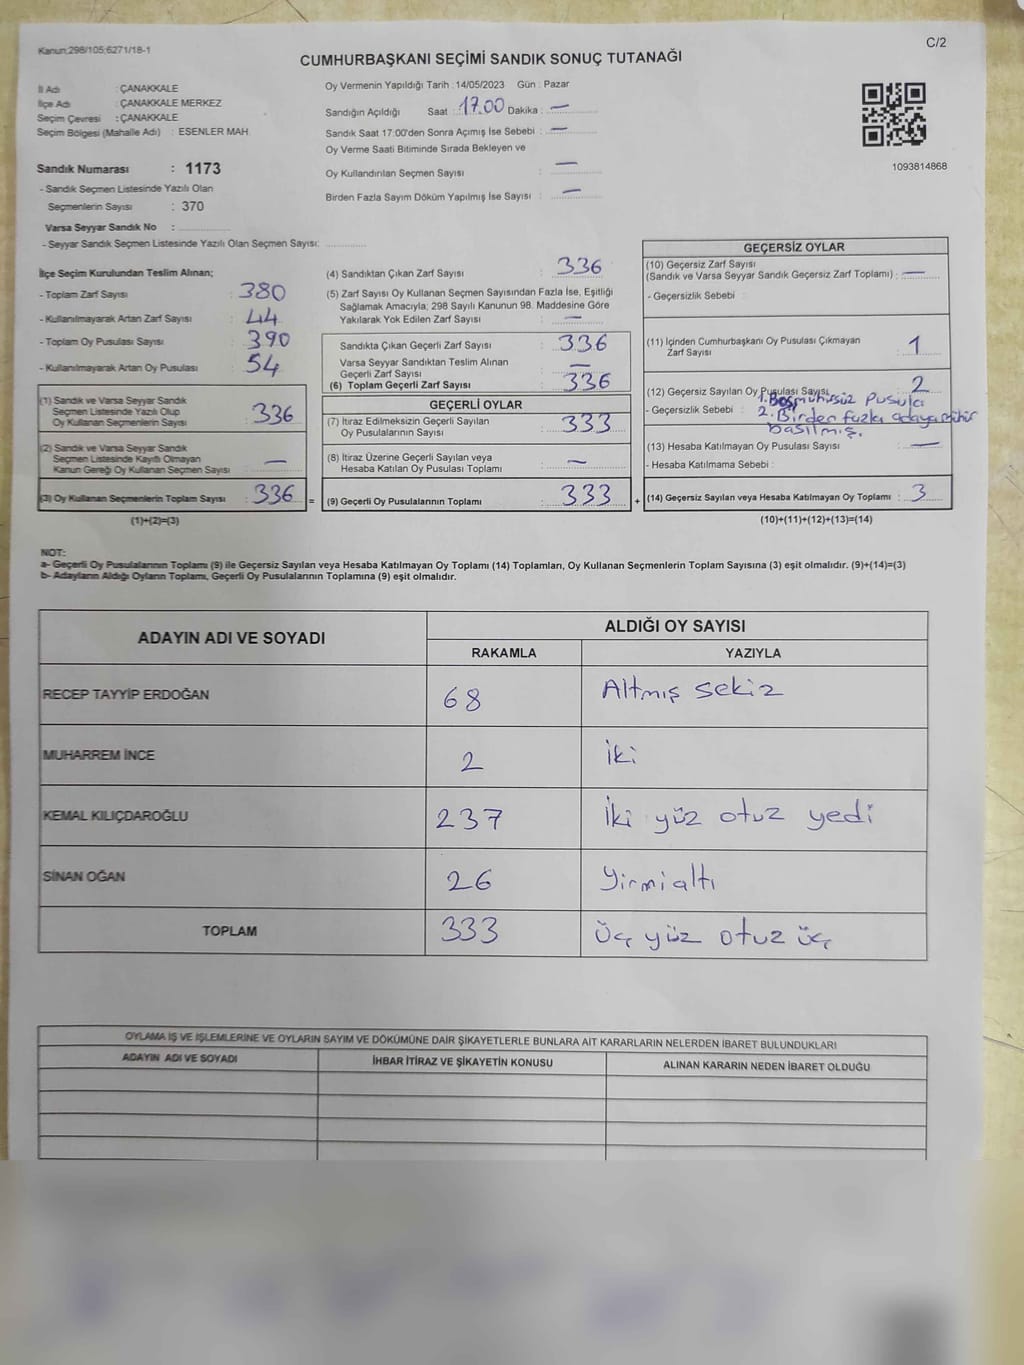 Kanun:298/105;6271/18-1
C/2
CUMHURBAŞKANI SEÇİMİ SANDIK SONUÇ TUTANAĞI
İl Adı : ÇANAKKALE
İlçe Adı : ÇANAKKALE MERKEZ
Seçim Çevresi : ÇANAKKALE
Seçim Bölgesi (Mahalle Adı) : ESENLER MAH.
Sandık Numarası : 1173
- Sandık Seçmen Listesinde Yazılı Olan
Seçmenlerin Sayısı : 370
Varsa Seyyar Sandık No :
- Seyyar Sandık Seçmen Listesinde Yazılı Olan Seçmen Sayısı:
Oy Vermenin Yapıldığı Tarih : 14/05/2023 Gün : Pazar
Sandığın Açıldığı Saat : 17.00 Dakika : —
Sandık Saat 17:00'den Sonra Açımış İse Sebebi : —
Oy Verme Saati Bitiminde Sırada Bekleyen ve
Oy Kullandırılan Seçmen Sayısı : —
Birden Fazla Sayım Döküm Yapılmış İse Sayısı : —
1093814868
İlçe Seçim Kurulundan Teslim Alınan;
- Toplam Zarf Sayısı : 380
- Kullanılmayarak Artan Zarf Sayısı : 44
- Toplam Oy Pusulası Sayısı : 390
- Kullanılmayarak Artan Oy Pusulası : 54
(1) Sandık ve Varsa Seyyar Sandık
Seçmen Listesinde Yazılı Olup
Oy Kullanan Seçmenlerin Sayısı : 336
(2) Sandık ve Varsa Seyyar Sandık
Seçmen Listesinde Kayıtlı Olmayan
Kanun Gereği Oy Kullanan Seçmen Sayısı : —
(3) Oy Kullanan Seçmenlerin Toplam Sayısı : 336 =
(1)+(2)=(3)
(4) Sandıktan Çıkan Zarf Sayısı : 336
(5) Zarf Sayısı Oy Kullanan Seçmen Sayısından Fazla İse, Eşitliği
Sağlamak Amacıyla; 298 Sayılı Kanunun 98. Maddesine Göre
Yakılarak Yok Edilen Zarf Sayısı : —
Sandıkta Çıkan Geçerli Zarf Sayısı : 336
Varsa Seyyar Sandıktan Teslim Alınan
Geçerli Zarf Sayısı : —
(6) Toplam Geçerli Zarf Sayısı : 336
GEÇERLİ OYLAR
(7) İtiraz Edilmeksizin Geçerli Sayılan
Oy Pusulalarının Sayısı : 333
(8) İtiraz Üzerine Geçerli Sayılan veya
Hesaba Katılan Oy Pusulası Toplamı : —
(9) Geçerli Oy Pusulalarının Toplamı : 333 +
GEÇERSİZ OYLAR
(10) Geçersiz Zarf Sayısı
(Sandık ve Varsa Seyyar Sandık Geçersiz Zarf Toplamı) : —
- Geçersizlik Sebebi :
(11) İçinden Cumhurbaşkanı Oy Pusulası Çıkmayan
Zarf Sayısı : 1
(12) Geçersiz Sayılan Oy Pusulası Sayısı : 2
- Geçersizlik Sebebi : 1. Boş mühürsüz pusula
2. Birden fazla adaya mühür
basılmış.
(13) Hesaba Katılmayan Oy Pusulası Sayısı : —
- Hesaba Katılmama Sebebi :
(14) Geçersiz Sayılan veya Hesaba Katılmayan Oy Toplamı : 3
(10)+(11)+(12)+(13)=(14)
NOT:
a- Geçerli Oy Pusulalarının Toplamı (9) ile Geçersiz Sayılan veya Hesaba Katılmayan Oy Toplamı (14) Toplamları, Oy Kullanan Seçmenlerin Toplam Sayısına (3) eşit olmalıdır. (9)+(14)=(3)
b- Adayların Aldığı Oyların Toplamı, Geçerli Oy Pusulalarının Toplamına (9) eşit olmalıdır.
ADAYIN ADI VE SOYADI
ALDIĞI OY SAYISI
RAKAMLA YAZIYLA
RECEP TAYYİP ERDOĞAN 68 Altmış sekiz
MUHARREM İNCE 2 İki
KEMAL KILIÇDAROĞLU 237 İki yüz otuz yedi
SİNAN OĞAN 26 Yirmialtı
TOPLAM 333 Üç yüz otuz üç
OYLAMA İŞ VE İŞLEMLERİNE VE OYLARIN SAYIM VE DÖKÜMÜNE DAİR ŞİKAYETLERLE BUNLARA AİT KARARLARIN NELERDEN İBARET BULUNDUKLARI
ADAYIN ADI VE SOYADI İHBAR İTİRAZ VE ŞİKAYETİN KONUSU ALINAN KARARIN NEDEN İBARET OLDUĞU